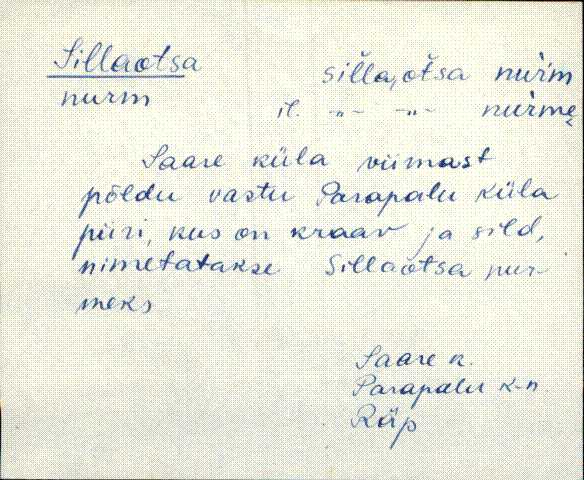 Sillaotsa šilla,otsa nuŕm
nurm il. -"- -"- nuŕme
Saare küla viimast
põldu vastu Parapalu küla
piiri, kus on kraav ja sild,
nimetatakse Sillaotsa nur-
meks
Saare k.
Parapalu k-n.
Räp